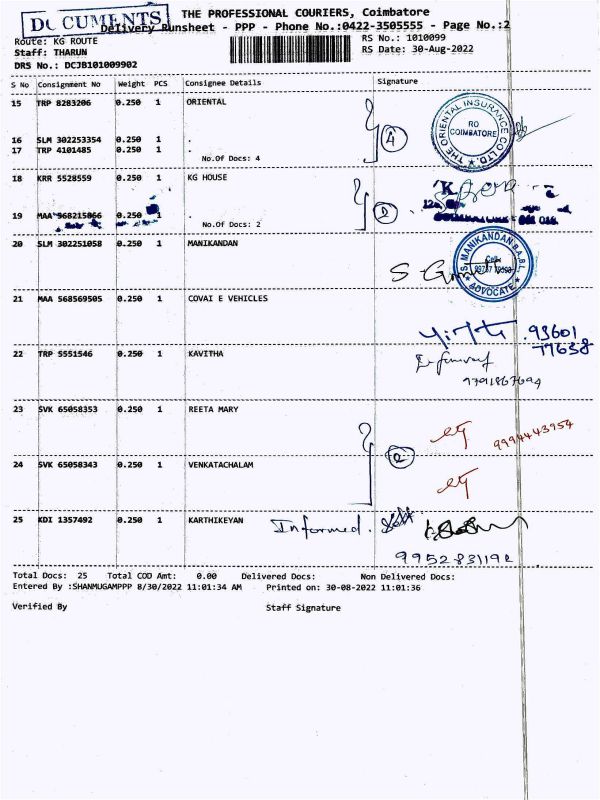 DOCUMENTS
THE PROFESSIONAL COURIERS, Coimbatore
Delivery Runsheet - PPP - Phone No.:0422-3505555 - Page No.:2
Route: KG ROUTE
RS No.: 1010099
Staff: THARUN
RS Date: 30-Aug-2022
DRS No.: DCJB101009902
S No Consignment No Weight PCS Consignee Details Signature
15 TRP 8283206 0.250 1 ORIENTAL
THE ORIENTAL INSURANCE CO. LTD.
RO
COIMBATORE
16 SLM 302253354 0.250 1 .
17 TRP 4101485 0.250 1 .
No.Of Docs: 4
18 KRR 5528559 0.250 1 KG HOUSE
19 MAA 568215066 0.250 1 .
No.Of Docs: 2
20 SLM 302251058 0.250 1 MANIKANDAN
S. MANIKANDAN B.A.,B.L.
ADVOCATE
21 MAA 568569505 0.250 1 COVAI E VEHICLES
93601
77638
22 TRP 5551546 0.250 1 KAVITHA
9791867694
23 SVK 65058353 0.250 1 REETA MARY
9994443954
24 SVK 65058343 0.250 1 VENKATACHALAM
25 KDI 1357492 0.250 1 KARTHIKEYAN Informed.
Total Docs: 25 Total COD Amt: 0.00 Delivered Docs: Non Delivered Docs:
Entered By :SHANMUGAMPPP 8/30/2022 11:01:34 AM Printed on: 30-08-2022 11:01:36
Verified By Staff Signature